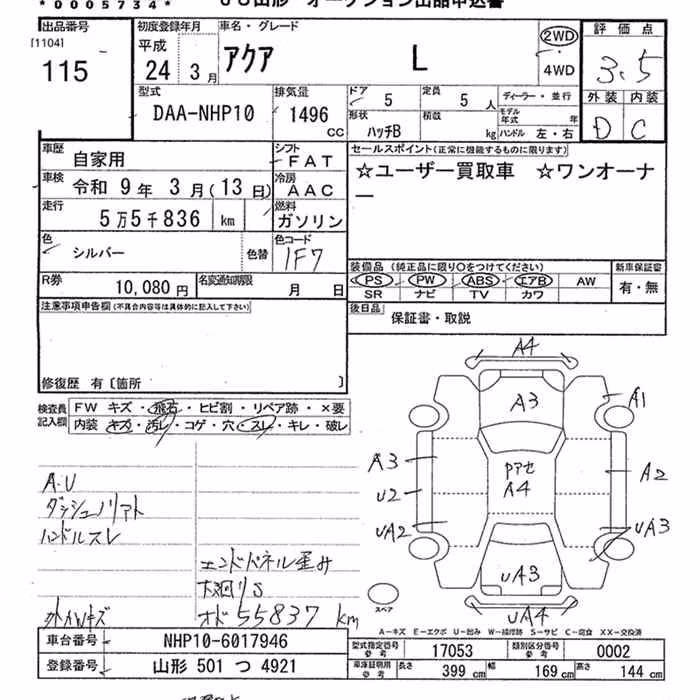 *0005734*
JU山形 オークション出品申込書
出品番号
[1104]
115
初度登録年月
平成
24 3月
車名・グレード
アクア L
2WD
・
4WD
評価点
3.5
外装 内装
D C
型式
DAA-NHP10
排気量
1496
CC
ドア
5
定員
5人
ディーラー・並行
形状
ハッチB
積載
kg
モデル年式 年
ハンドル 左・右
車歴
自家用
シフト
FAT
車検
令和 9年 3月(13日)
冷房
AAC
走行
5万5千836 km
燃料
ガソリン
色
シルバー
色替
色コード
1F7
R券
10,080円
名変通知期限
月 日
セールスポイント(正常に機能するものに限ります)
☆ユーザー買取車 ☆ワンオーナ
ー
装備品(純正品に限り○をつけてください)
PS PW ABS エアB AW
SR ナビ TV カワ
新車保証書
有・無
後日品
保証書・取説
注意事項申告欄(不具合内容等は具体的に記入して下さい)
修復歴 有〔箇所 〕
検査員
記入欄
FW キズ・飛石・ヒビ割・リペア跡・×要
内装 キズ・汚レ・コゲ・穴・スレ・キレ・破レ
A.U
ハンドルスレ
エンドパネル歪み
下廻りS
外AWキズ
オド 55837 km
A4
A3
A1
A3
U2
UA2
A4
A2
UA3
UA3
UA4
スペア
A－キズ E－エクボ U－凹み W－補修跡 S－サビ C－腐食 XX－交換済
車台番号
NHP10-6017946
登録番号
山形 501 つ 4921
型式指定番号
参考
17053
類別区分番号
参考
0002
車庫証明用
参考
長さ
399 cm
幅
169 cm
高さ
144 cm